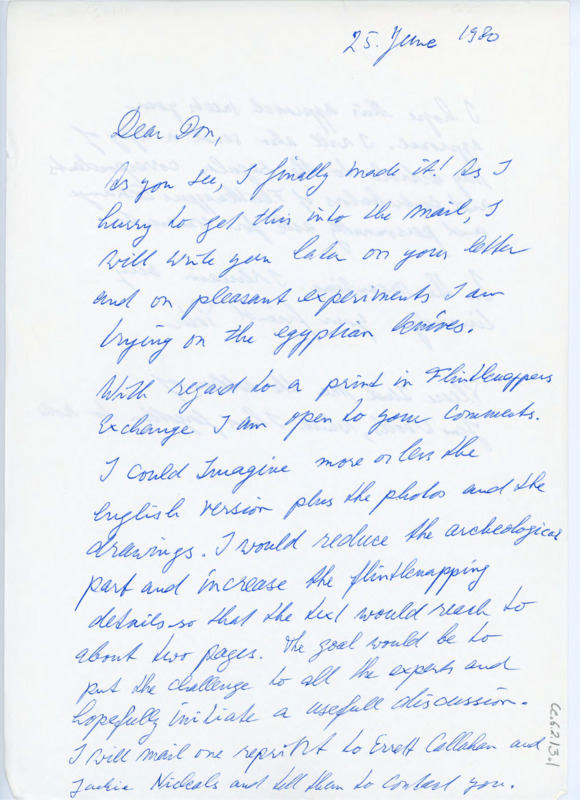 25. June 1980
Dear Don,
As you see, I finally made it! As I
hurry to get this into the mail, I
will write you later on your letter
and on pleasant experiments I am
trying on the egyptian knives.
With regard to a print in Flintknappers
Exchange I am open to your comments.
I could Imagine more or less the
english version plus the photos and the
drawings. I would reduce the archeological
part and increase the flintknapping
details so that the text would reach to
about two pages. The goal would be to
put the challenge to all the experts and
hopefully initiate a usefull discussion.
I will mail one reprint to Errett Callahan and
Jackie Nichols and tell them to contact you.
Cc.6.2.13.1